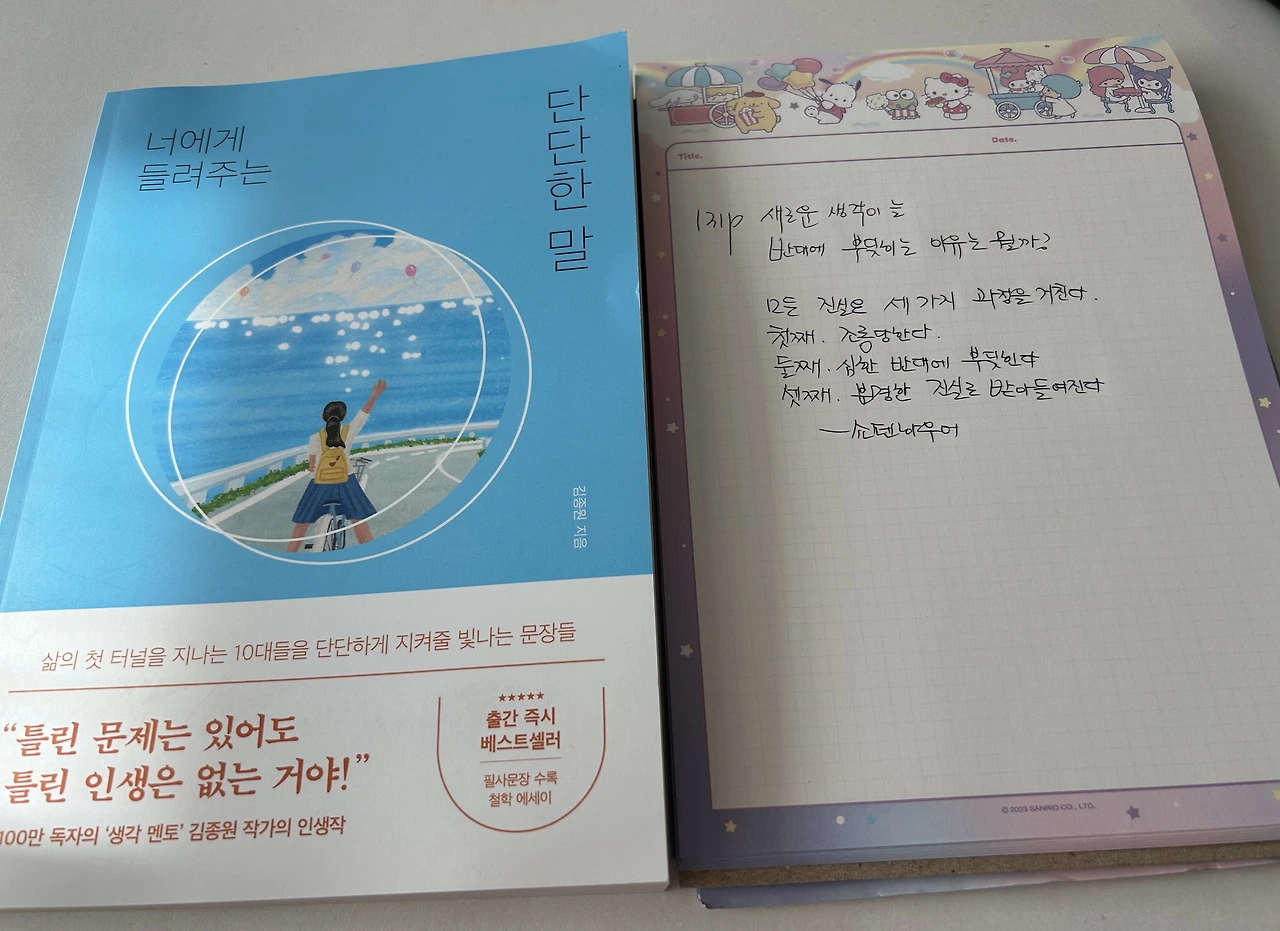 너에게
들려주는
단단한 말
김종원 지음
삶의 첫 터널을 지나는 10대들을 단단하게 지켜줄 빛나는 문장들
“틀린 문제는 있어도
틀린 인생은 없는 거야!”
100만 독자의 ‘생각 멘토’ 김종원 작가의 인생작
★★★★★
출간 즉시
베스트셀러
필사문장 수록
철학 에세이
Title.
Date.
131p 새로운 생각이 늘
반대에 부딪히는 이유는 뭘까?
모든 진실은 세 가지 과정을 거친다.
첫째. 조롱당한다.
둘째. 심한 반대에 부딪힌다
셋째. 분명한 진실로 받아들여진다
—쇼펜하우어
© 2023 SANRIO CO., LTD.